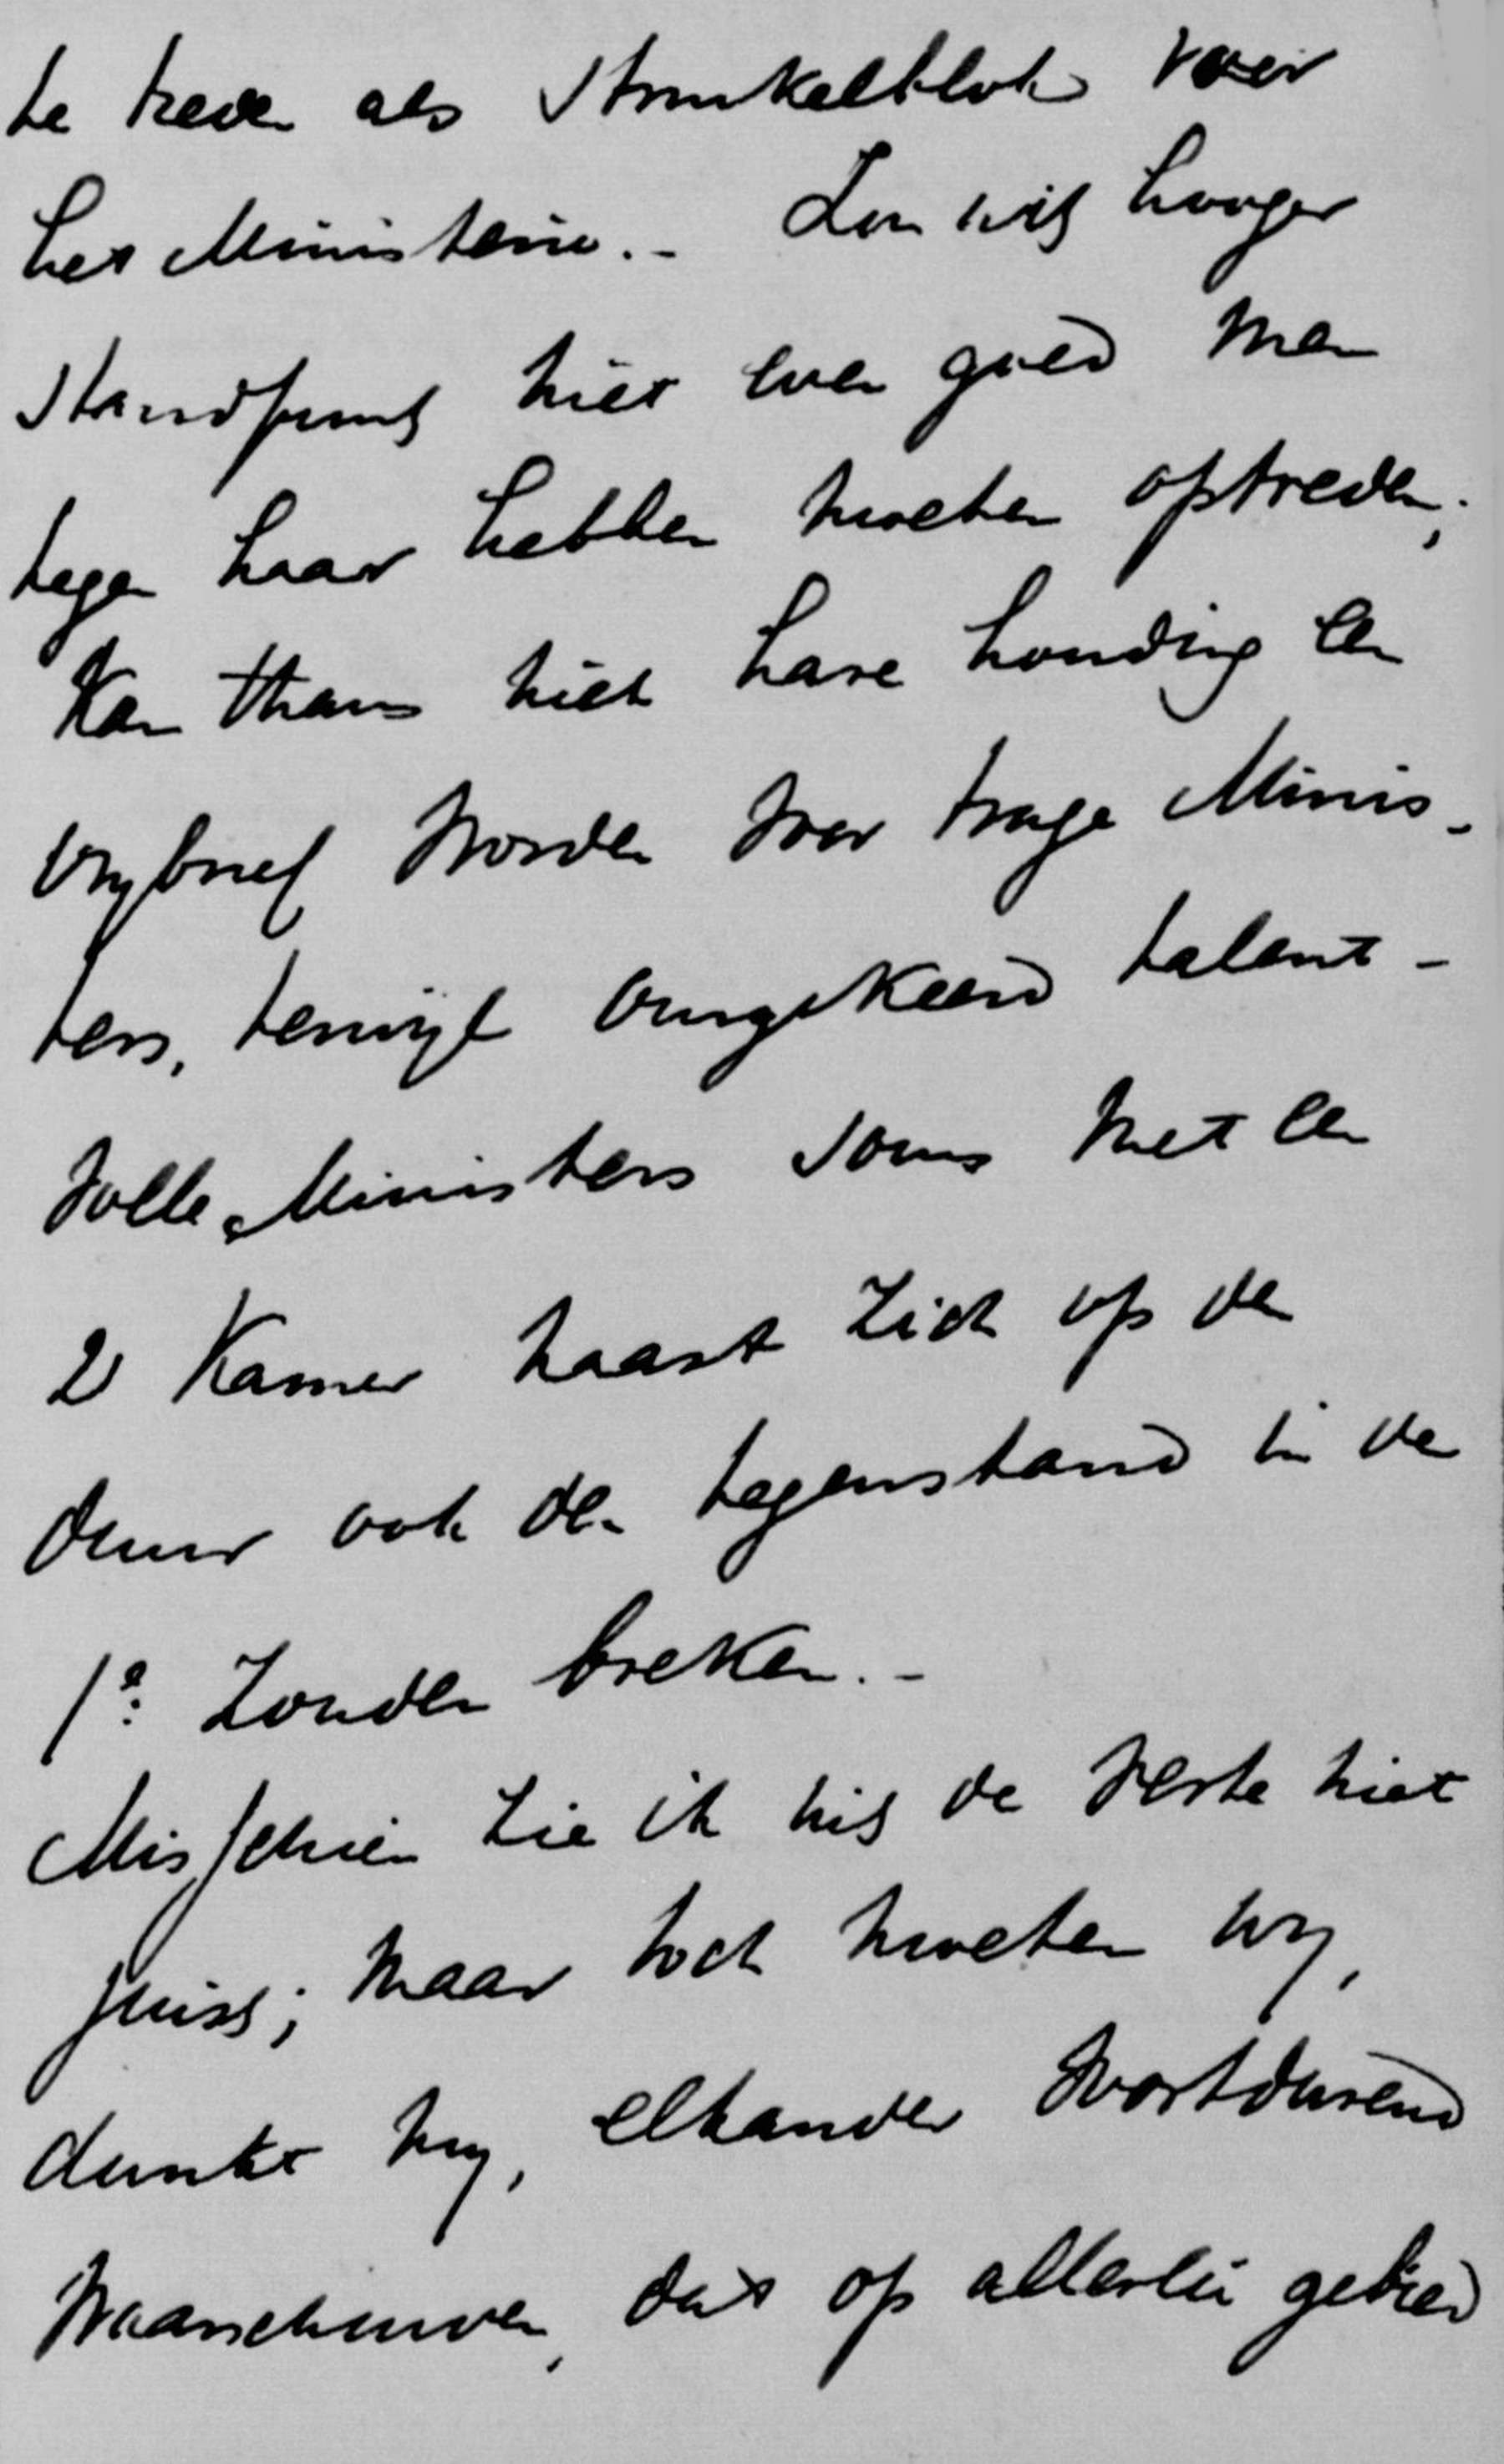 te treden als struikelblok voor
het Ministerie. - Zou uit hooger
standpunt niet even goed men
tegen haar hebben moeten optreden;
Kan thans niet hare houding een
vrybrief worden voor trage Minis-
ters, terwijl omgekeerd talent-
volle Ministers soms met een
2e Kamer haast zich op den
duur ook den tegenstand in de
1e: zouden breken. -
Misschien zie ik uit de verte niet
juist; maar toch moeten wy,
dunkt my, elkander voortdurend
waarschuwen, dat op allerlei gebied